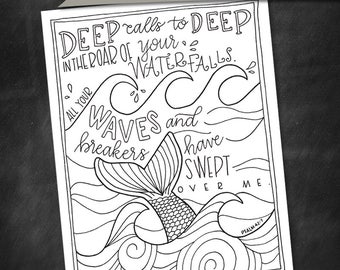 DEEP calls to DEEP
IN THE ROAR OF your
WATERFALLS.
ALL YOUR
WAVES and
breakers
have
SWEPT
OVER ME.
PSALM 42:7